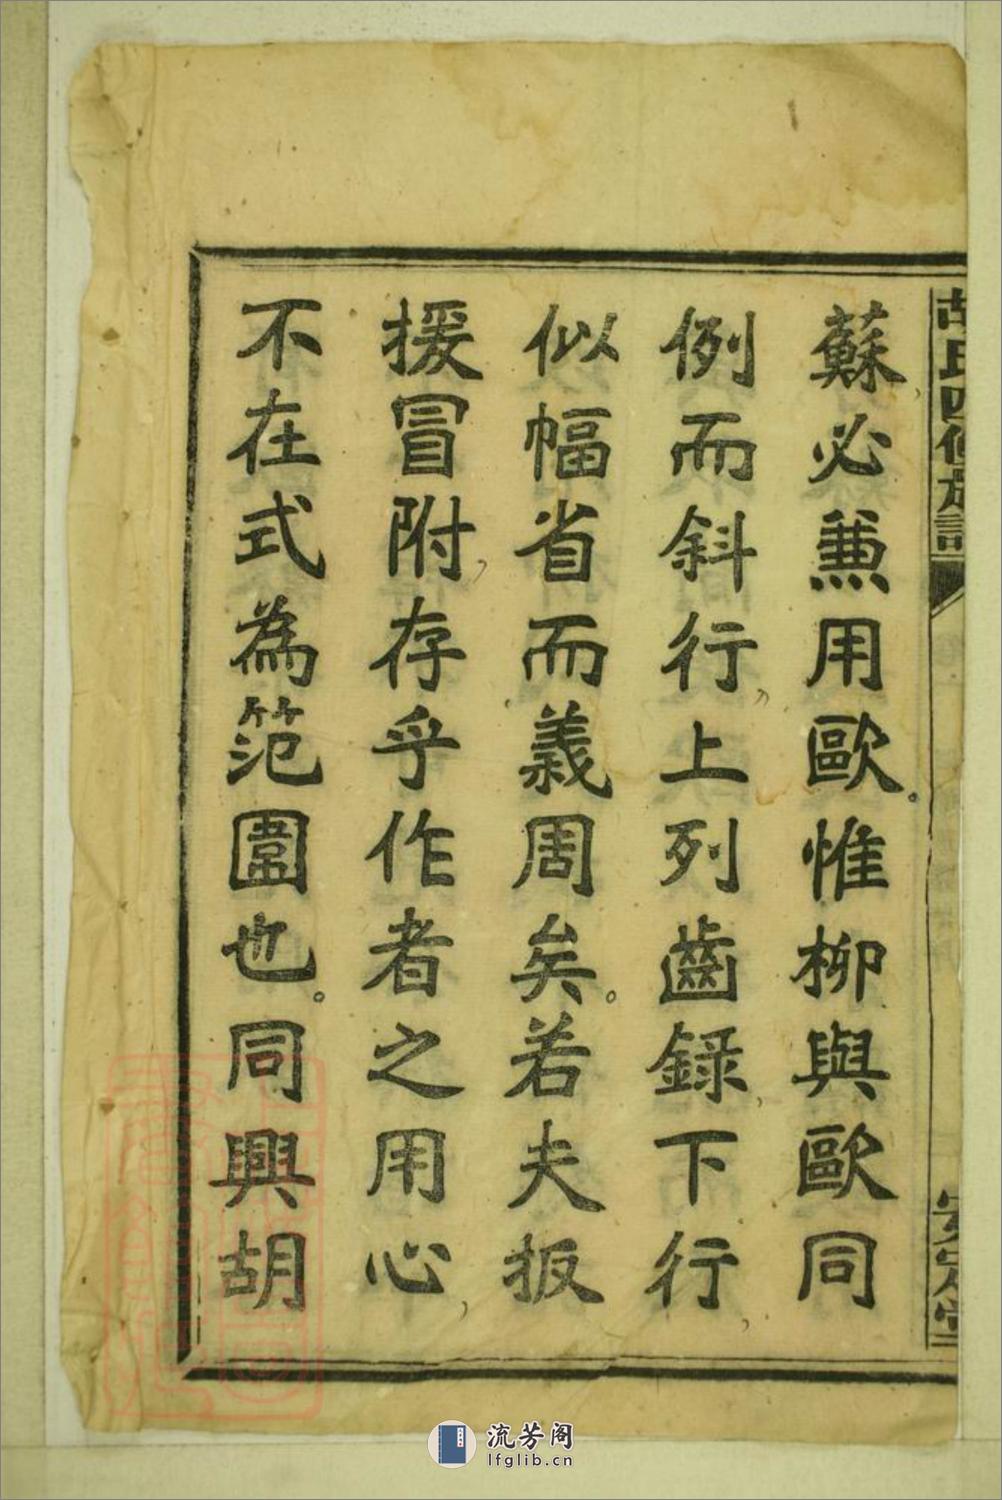 胡氏四修族譜
安定堂
蘇，必兼用歐。惟柳與歐同
例而斜行，上列齒錄，下行
似幅省而義周矣。若夫扳
援冒附，存乎作者之用心，
不在式為范圍也。同興胡
流芳阁
lfglib.cn